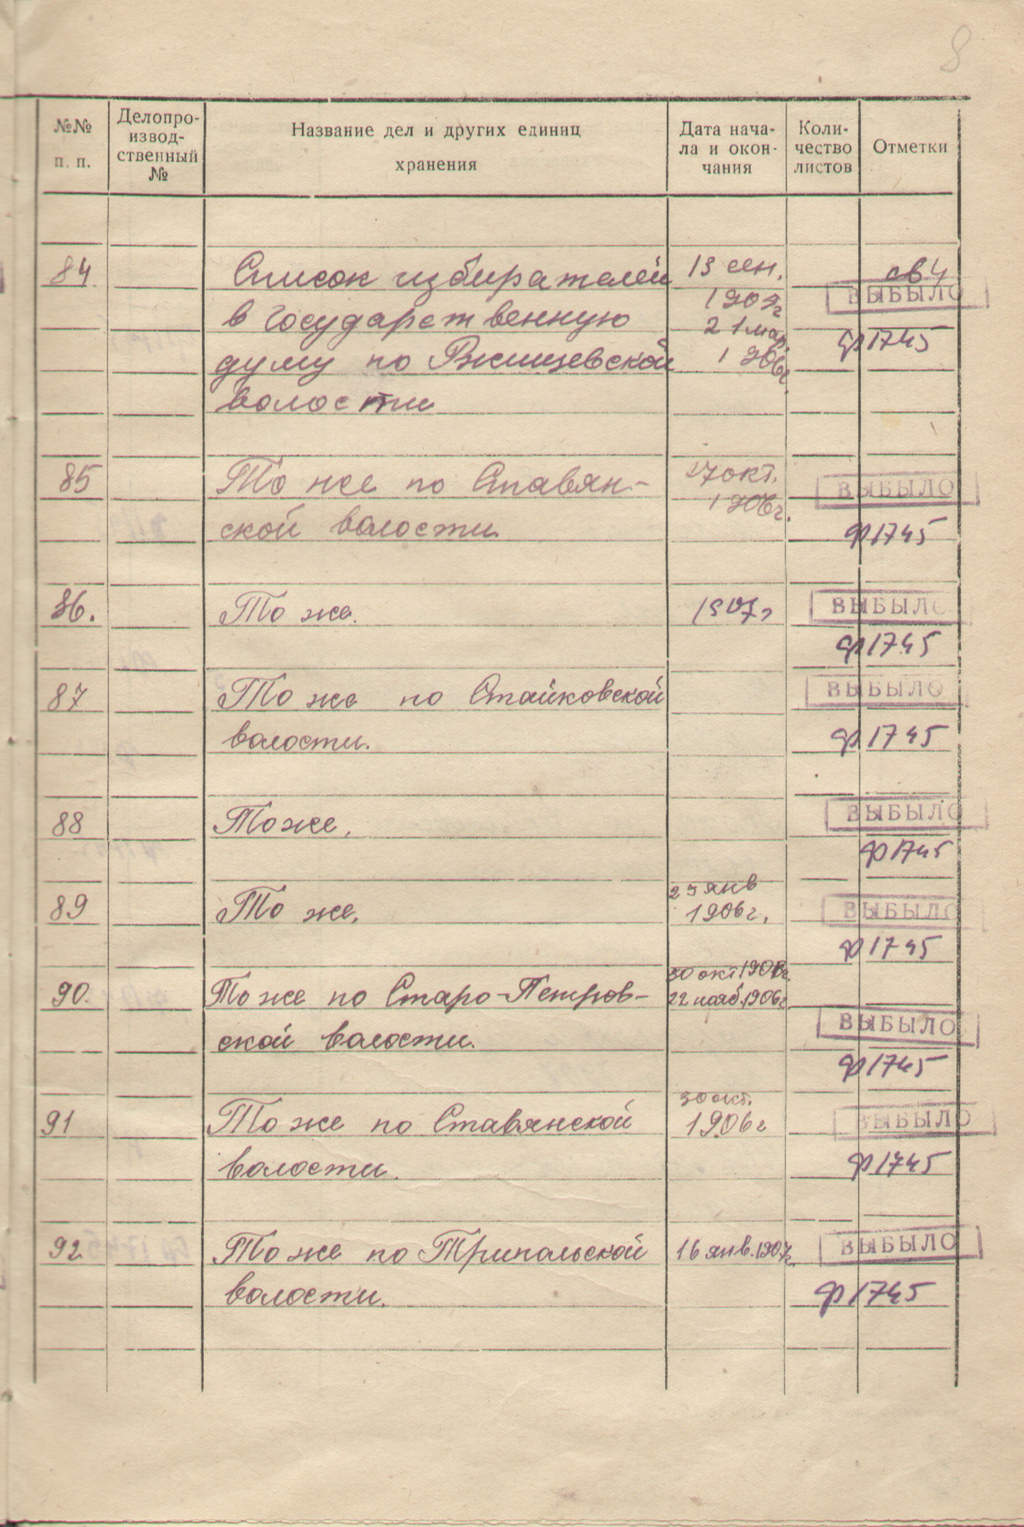 8
№№ п. п.
Делопро-
извод-
ственный
№
Название дел и других единиц
хранения
Дата нача-
ла и окон-
чания
Коли-
чество
листов
Отметки
84. Список избирателей 13 сен. св 4
ВЫБЫЛО
в государственную
21 мар.
думу по Ржищевской 1906г. ф1745
волости
85 То же по Ставян- 27 окт. ВЫБЫЛО
1906г.
ской волости. ф1745
86. То же. 1907г ВЫБЫЛО
ф1745
87 То же по Стайковской ВЫБЫЛО
волости. ф1745
88 То же, ВЫБЫЛО
ф1745
89 То же, 29 янв ВЫБЫЛО
1906г.
ф1745
30 окт
90. То же по Старо-Петров- 22 нояб. 1906г
ской волости. ВЫБЫЛО
ф1745
30 окт.
91 То же по Ставянской 1906г ВЫБЫЛО
волости. ф1745
92. То же по Трипольской 16 янв. 1907г. ВЫБЫЛО
волости. ф1745